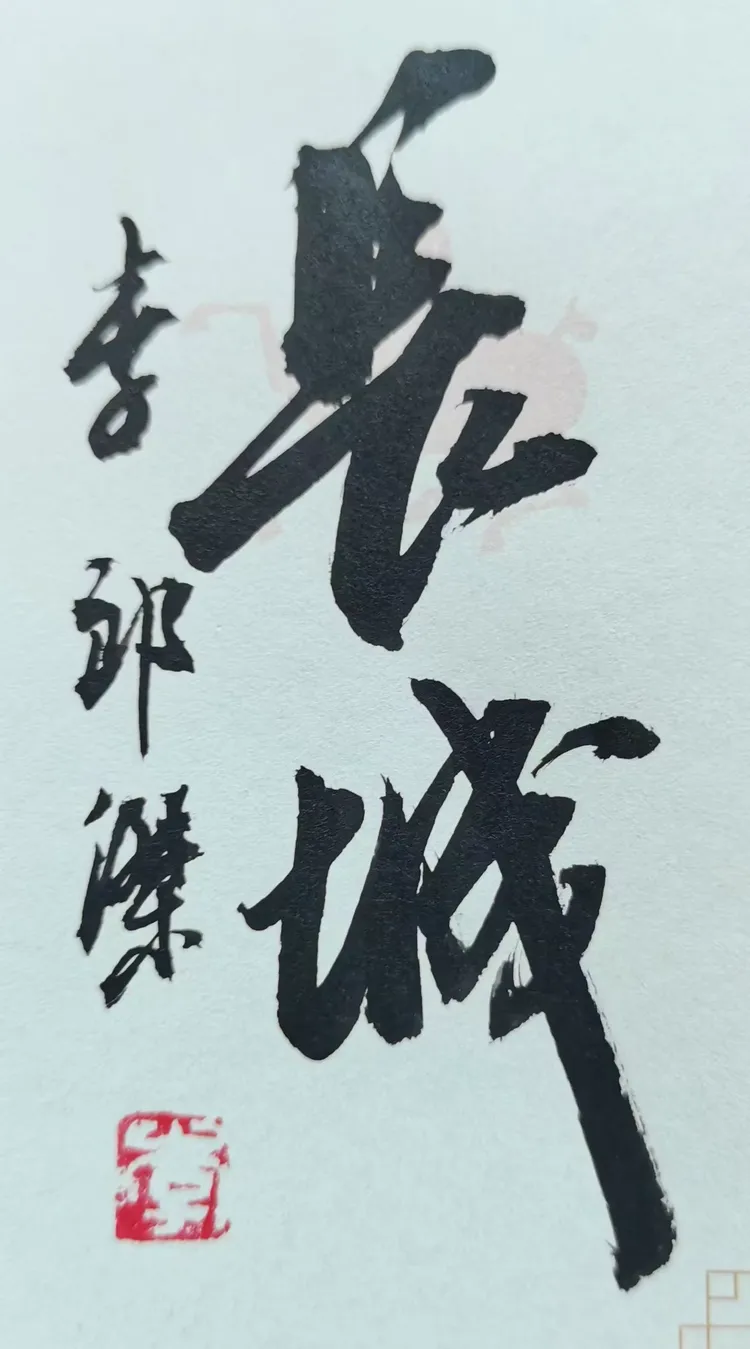 長城
李郎傑